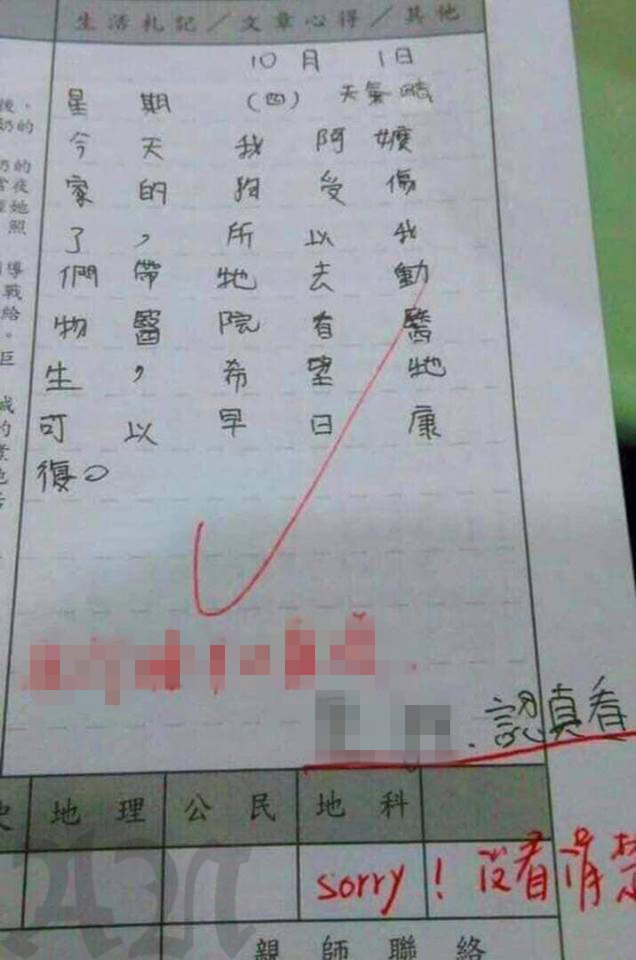 生活札記／文章心得／其他
10月 1日
星期（四） 天氣
今天我阿嬤
家的狗受傷
了，所以我
們帶牠去動
物醫院有醫
生，希望牠
可以早日康
復。
認真看
地理 公民 地科
sorry！沒看清
親師聯絡
後，
奶的
奶的
她
照
導
戰
給
。
巨
的